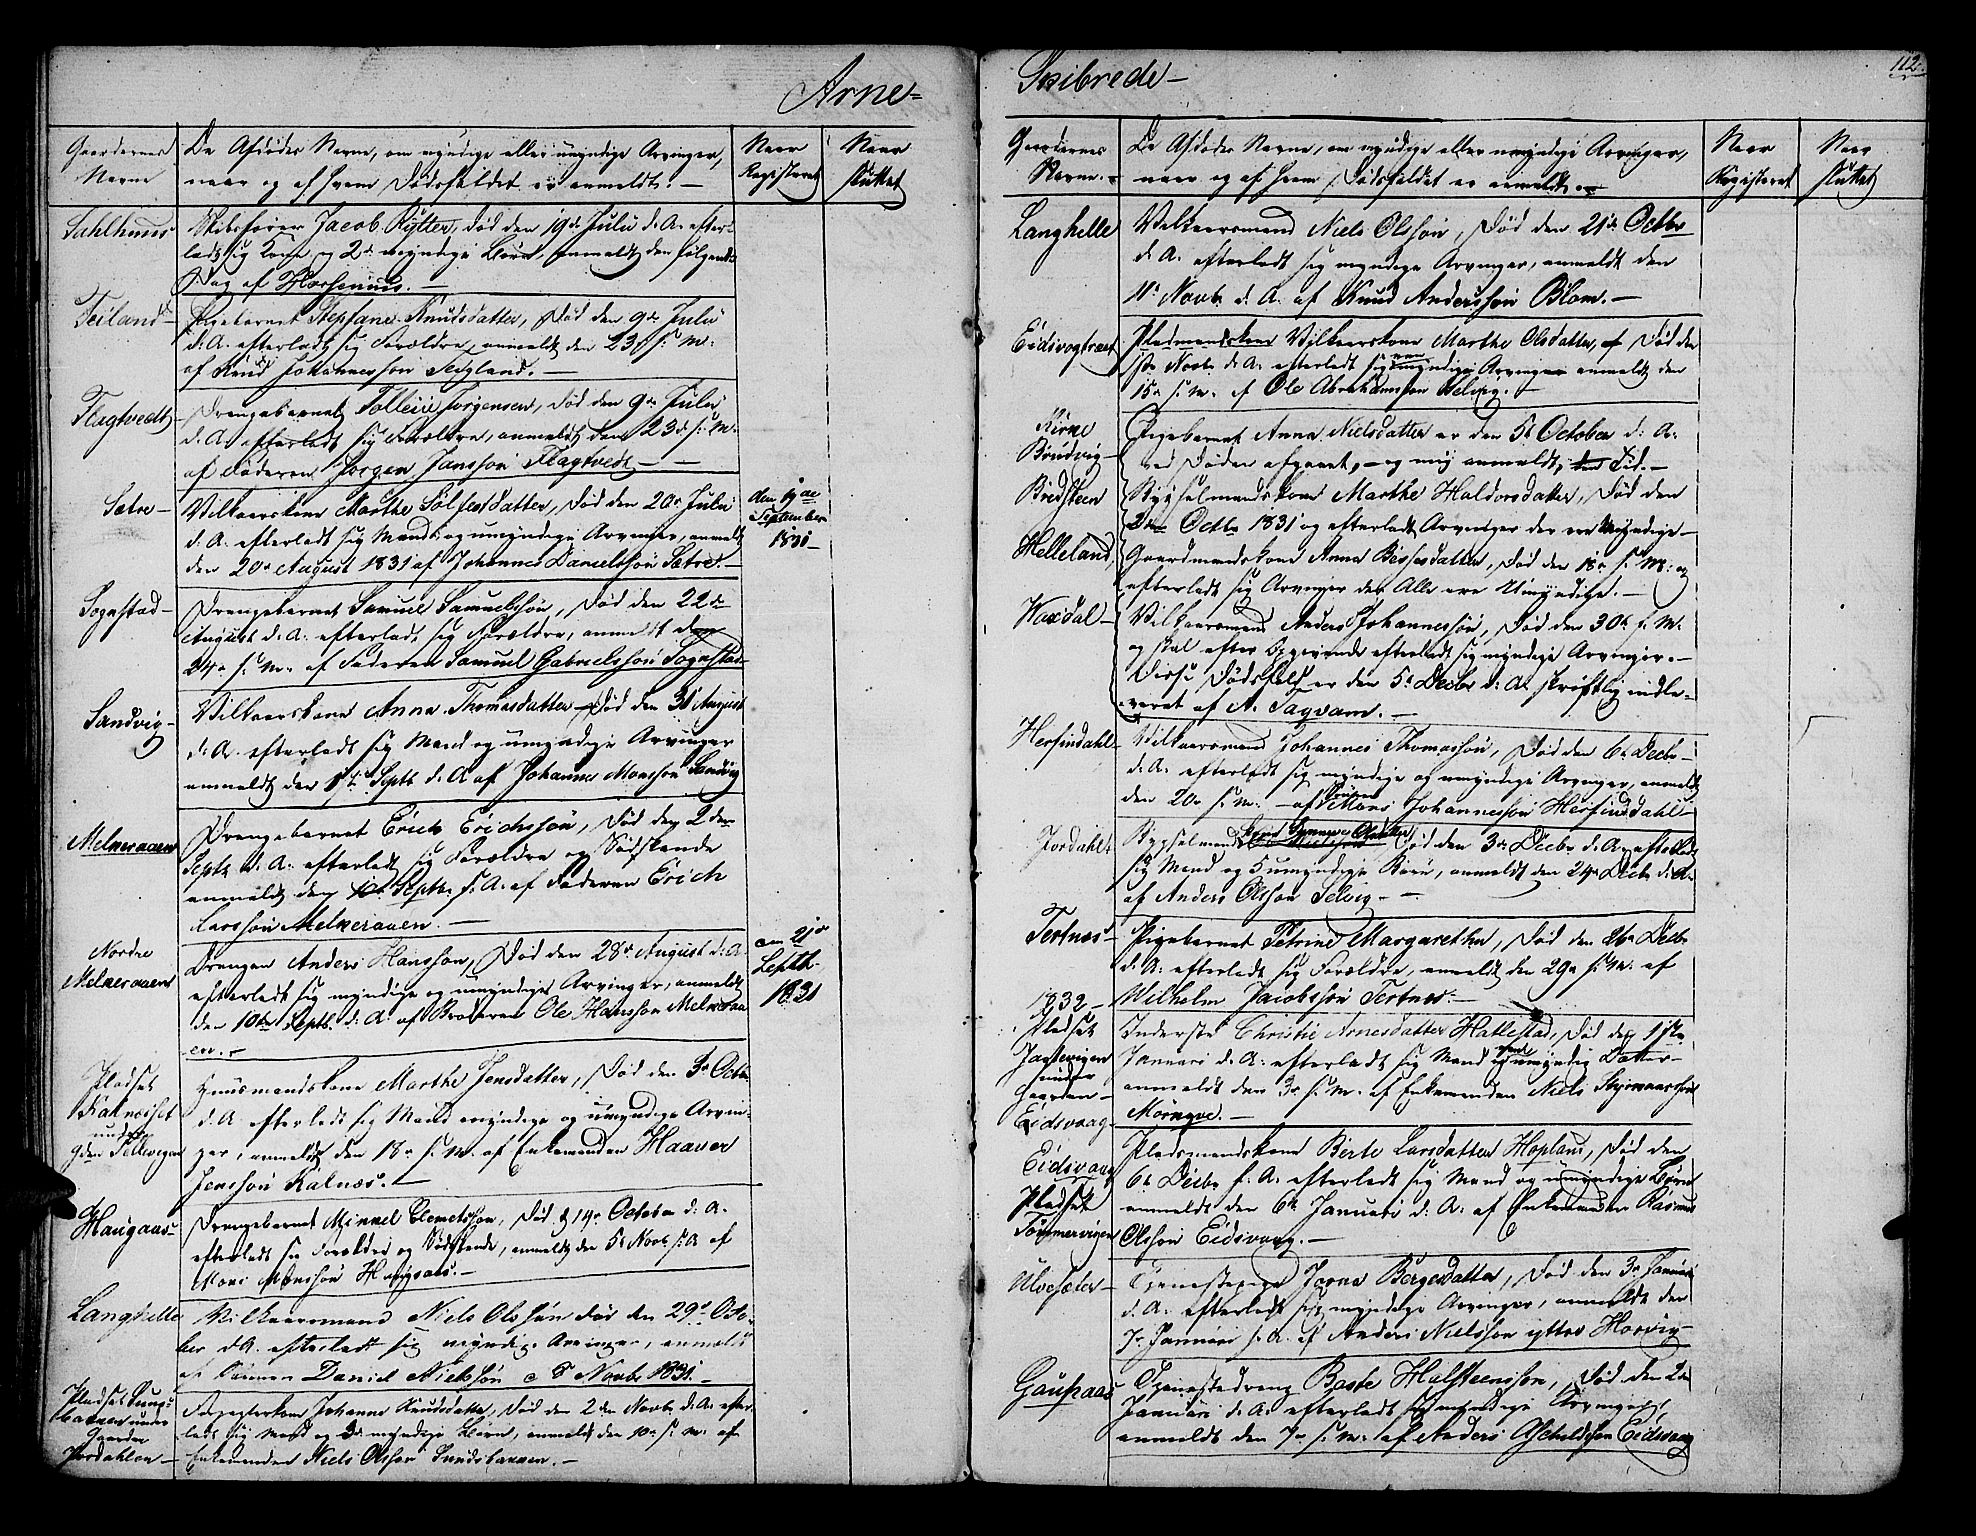 Arne-
Gaardernes Navne
De Afdødes Navne, om myndige eller umyndige Arvinger, naar og af hvem Dødsfaldet er anmeldt. -
Naar Registeret
Naar sluttet
Sahlhuus
Skibsfører Jacob Rÿtter, død den 19de Julii d. A. efter-
ladt sig Kone og 2de myndige Børn, anmeldt den følgende
Dag af Horsenuus. -
Teiland -
Pigebarnet Stephane Knudsdatter, død den 9de Julii
d. A. efterladt sig Forældre, anmeldt den 23de s. M.
af Knud Johannessøn Teigland. -
Flagtvedt -
Drengebarnet Tolleiv Jørgensen, død den 9de Julii
d. A. efterladt sig Forældre, anmeldt den 23d s. M.
af Faderen Jørgen Janssøn Flagtvedt - -
Sætre -
Vilkaarskone Marthe Sølfestdatter, død den 20de Julii
d. A. efterladt sig Mand og umyndige Arvinger, anmeldt
den 20de August 1831 af Johannes Danielssøn Sætre. -
den 19de
September
1831 -
Sognstad -
Drengebarnet Samuel Samuelssøn, død den 22de
August d. A. efterladt sig Forældre, anmeldt den
24de s. M. af Faderen Samuel Gabrielssøn Sognstad
Sandvig -
Vilkaarskone Anna Thomasdatter død den 31 August
d. A. efterladt sig Mand og umyndige Arvinger
anmeldt den 17de Septb d. A af Johannes Monssøn Sandvig
Melkeraaen
Drengebarnet Erich Erichssøn, død den 2den
Septb d. A. efterladt sig Forældre og Sødskende
anmeldt den 10de Septbr s. A. af Faderen Erich
Larssøn Melkeraaen. -
Nordre
Melkeraaen
Drengen Anders Hanssøn, død den 28de August d. A.
efterladt sig myndige og umyndige Arvinger, anmeldt
den 10de Septb. d. A. af Broderen Ole Hanssøn Melkeraa
en. -
den 21de
Septb.
1831
Pladset
Kalnæset
under
Gden Tellevigen
Huusmandskone Marthe Jensdatter, død den 3de Octbr
d. A efterladt sig Mand myndige og umyndige Arvin-
ger, anmeldt den 18de s. M. af Enkemanden Haaver
Jenssøn Kalnæs. -
Haugaas -
Drengebarnet Mikkel Clemetssøn, død d 14de October d. A.
efterladt sig Forældre og Sødskende, anmeldt den 5te Novb. s. A af
Mons Monssøn Haugaas. -
Langhelle
Vilkaarsmand Niels Olssøn død den 29de Octo-
ber d. A. efterladt sig myndige Arvinger, anmeldt
af Sønnen Daniel Nielssøn d 8 Novbr 1831. -
Pladset Sunds-
bakken under
Gaarden
Jordahlen -
Johanne Knudsdatter, død den 2den Novbr d. A. efter-
ladt sig Mand og 3de myndige Børn, anmeldt den 10de s. M. af
Enkemanden Niels Olssøn Sundsbakken. -
Skibrede -
112.
Gaardernes Navne. -
De Afdødes Navne, om myndige eller umyndige Arvinger,
naar og af hvem Dødsfaldet er anmeldt. -
Naar Registeret
Naar sluttet
Langhelle
Vilkaarsmand Niels Olssøn, død den 21de Octbr
d. A. efterladt sig myndige Arvinger, anmeldt den
11te Novbr d. A. af Knud Anderssøn Blom. -
Eidsvogtræet
Pladsmandskone Vilkaarskone Marthe Olsdatter, død den
Novbr d. A. efterladt sig en myndige Arvinger anmeldt den
15de s. M. af Ole Abrahamssøn Selvig. -
Kirke
Brudvig -
Pigebarnet Anna Nielsdatter er den 5te October d. A.
ved Døden afgaaet, - og mig anmeldt, Tid. -
Bredsteen
Bygselmandskone Marthe Haldorsdatter, død den
2den Octbr 1831 og efterladt Arvinger der ere Myndige -
Helleland
Gaardmandskone Anna Birtesdatter, død den 18de s. M. og
efterladt sig Arvinger der Alle ere Umyndige. -
Waxdal -
Vilkaarsmand Anders Johannessøn, død den 30te s. M.
og skal efter Opgivende efterladt sig myndige Arvinger. -
Disse Dødsfald er den 5te Decbr d. A. skriftlig indle-
veret af A. Tagvam. -
Herfindahl -
Vilkaarsmand Johannes Thomassøn, død den 6te Decbr
d. A. efterladt sig myndige og umyndige Arvinger, anmeldt
den 20de s. M. - af Sønnen Mons Johannessøn Herfindahl -
Jordahl
Bygselmands Kone Synneve Olsdatter død den 3de Decbr d. A. efterladt
sig Mand og 5 umyndige Børn, anmeldt den 24de Decbr d. A.
af Anders Olssøn Selvig - -
Tertnes -
Pigebarnet Petrine Margaretha, død den 26de Decbr
d. A. efterladt sig Forældre, anmeldt den 29de s. M. af
Wilhelm Jacobssøn Tertnes. -
1832 -
Pladset
Jagtevigen
under
Gaarden
Eidsvaag -
Inderste Christie Arnesdatter Hallestad, død den 1ste
Januari d. A. efterladt sig Mand og umyndig Datter -
anmeldt den 3de s. M. af Enkemanden Niels
Mørnque. -
Eidsvaag
Pladset
Tømmervigen
Pladsmandskone Berte Larsdatter Hopland, død den
6te Decbr f. A. efterladt sig Mand og umyndige Børn
anmeldt den 6te Januari d. A. af Enkemanden Rasmus
Olssøn Eidsvaag. -
Ulvesæter -
Tjenestepige Jorna Børgesdatter, død den 3de Januari
d. A. efterladt sig myndige Arvinger, anmeldt den
7de Januari s. A. af Anders Nielssøn yttre Horvig -
Gaupaas
Tjenestedreng Baste Halsteenssøn, død den 2den
Januari d. A. efterladt sig myndige Arvinger,
anmeldt den 7de s. M. af Anders Eidsvaag